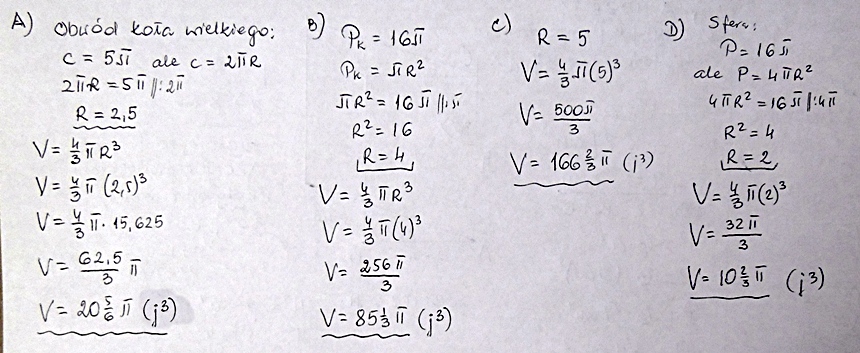 A) Obwód koła wielkiego:
c = 5π ale c = 2πR
2πR = 5π //:2π
R = 2,5
V = 4/3 πR³
V = 4/3 π (2,5)³
V = 4/3 π · 15,625
V = 62,5/3 π
V = 20 5/6 π (j³)
B) Pₖ = 16π
Pₖ = πR²
πR² = 16π //:π
R² = 16
R = 4
V = 4/3 πR³
V = 4/3 π(4)³
V = 256π/3
V = 85 1/3 π (j³)
C) R = 5
V = 4/3 π(5)³
V = 500π/3
V = 166 2/3 π (j³)
D) Sfera:
P = 16π
ale P = 4πR²
4πR² = 16π //:4π
R² = 4
R = 2
V = 4/3 π(2)³
V = 32π/3
V = 10 2/3 π (j³)